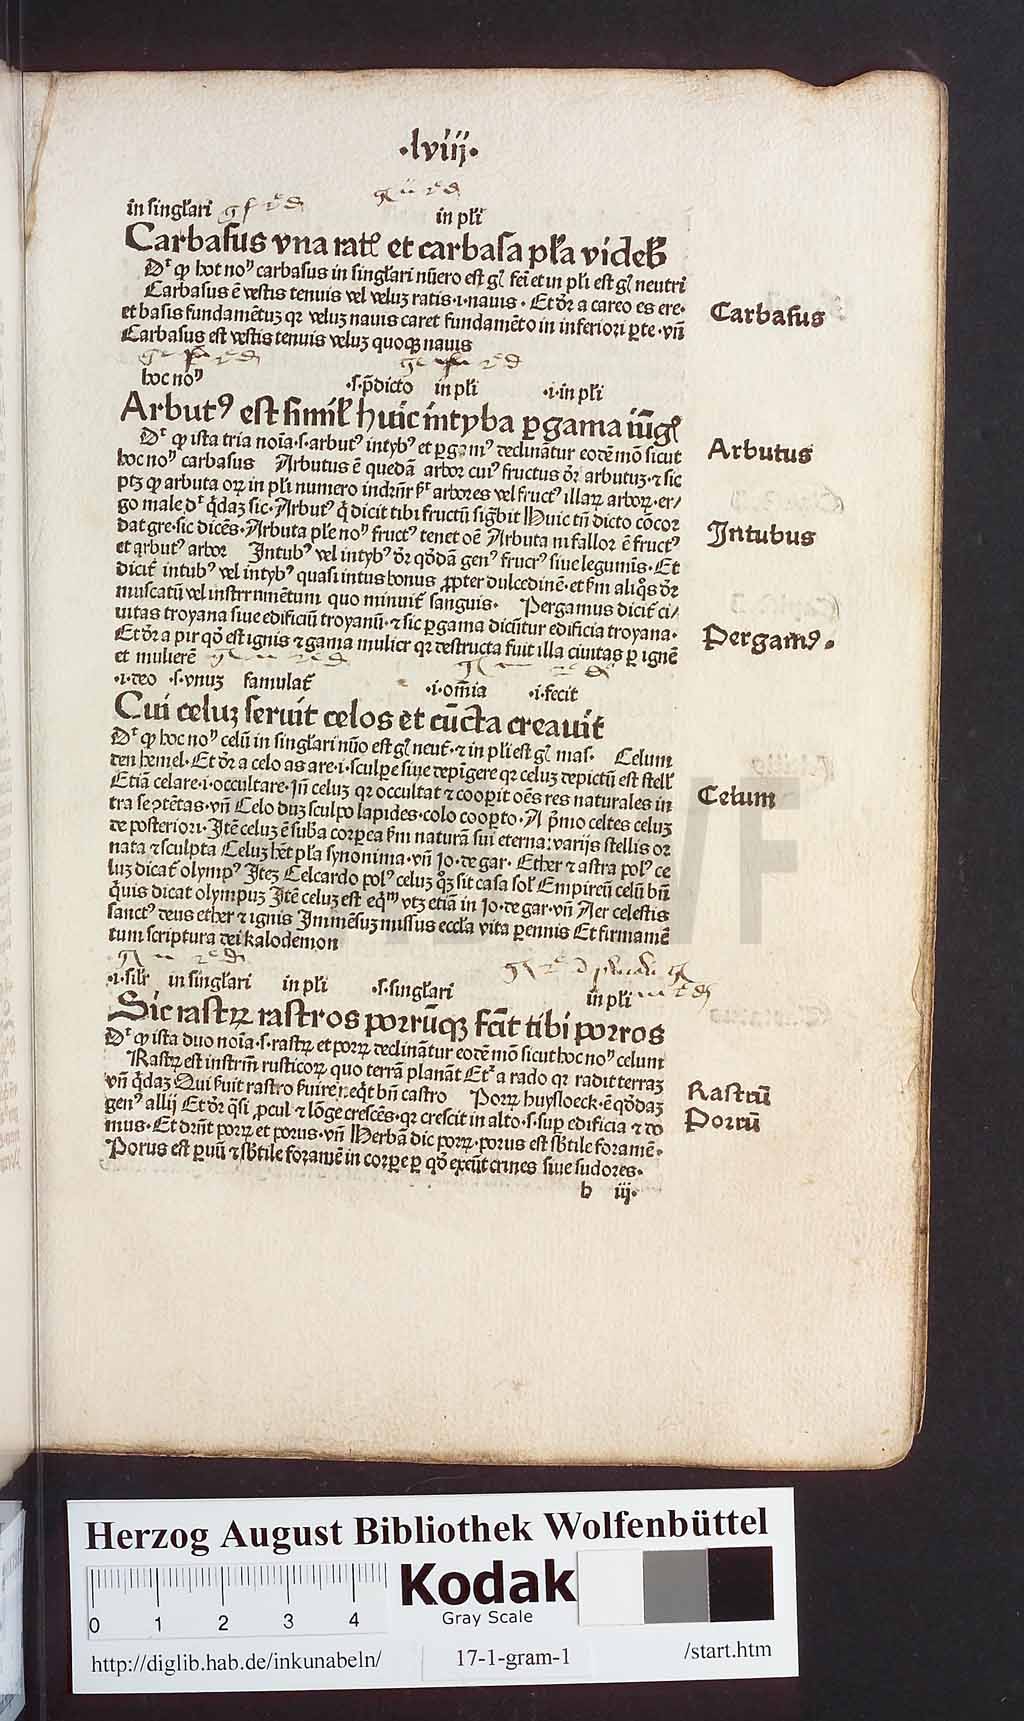 ·lviij·
in singlari in pli
Carbasus vna ratē et carbasa pła videƀ
Dr̄ ꝙ hoc noꝰ carbasus in singlari nūero est gͥ fei et in pli est gͥ neutri
Carbasus ē vestis tenuis vel veluꝫ ratis·i·nauis· Et dr̄ a careo es ere·
et basis fundamētuꝫ qꝛ veluꝫ nauis caret fundamēto in inferiori ꝑte·vñ
Carbasus est vestis tenuis veluꝫ quoqꝫ nauis
Carbasus
hoc noꝰ ·s·p̄dicto in pli ·i·in pli
Arbutꝰ est simił huic intyba ꝑgama iūgͥ
Dr̄ ꝙ ista tria noīa·s·arbutꝰ intybꝰ et ꝑgamꝰ declināntur eodē mō sicut
hoc noꝰ carbasus Arbutus ē quedā arbor cuiꝰ fructus dr̄ arbutuꝫ·⁊ sic
ptꝫ ꝙ arbuta oꝝ in pli numero arbores vel fructꝰ illaꝝ arboꝝ·er/
go male dr̄ q̄daꝫ sic·Arbutꝰ q̄ dicit tibi fructū sigͣbit Huic tñ dicto cōcor
dat gre·sic dicēs·Arbuta ple noꝰ fructꝰ tenet oē Arbuta ni fallor ē fructꝰ
et arbutꝰ arbor Intubꝰ vel intybꝰ dr̄ qͦdā genꝰ siue legumīs· Et
dicit̄ intubꝰ vel intybꝰ quasi intus bonus ꝓpter dulcedinē·et ẜm aliqͦs dr̄
muscatū vel instrumētum quo minuit̄ sanguis· Pergamus dicit̄ ci/
uitas troyana siue edificiū troyanū·⁊ sic ꝑgama dicūtur edificia troyana·
Et dr̄ a pir qͦd est ignis ⁊ gama mulier qꝛ destructa fuit illa ciuitas ꝑ ignē
et mulierē
Arbutus
Intubus
Pergamꝰ.
·i·deo ·s·vnuꝫ famulat̄ ·i·om̄ia ·i·fecit
Cui celuꝫ seruit celos et cūcta creauit
Dr̄ ꝙ hoc noꝰ celū in singlari nūo est gͥ neut̄·⁊ in pli est gͥ mas· Celum
den hemel·Et dr̄ a celo as are·i·sculpe siue depīgere qꝛ celuꝫ depictū est stell̄
Etiā celare·i·occultare·Iñ celuꝫ qꝛ occultat ⁊ cooperit oēs res naturales in
tra se ꝯtētas·vñ Celo duꝫ sculpo lapides·celo cooperto·A p̄mo celtes celuꝫ
de posteriori·Itē celuꝫ ē suba corꝑea ẜm naturā sui eterna: varijs stellis or
nata ⁊ sculpta Celuꝫ hēt pła synonima·vñ Jo·de gar· Ether ⁊ astra polꝰ ce
luꝫ dicat̄ olympꝰ Iteꝫ Celcardo polꝰ celuꝫ sit casa sol̄ Empireū celū bñ
q̄uis dicat olympuꝫ Itē celuꝫ est vtꝫ etiā in Jo·de gar·vñ Aer celestis
sanctꝰ deus ether ⁊ ignis Immēsuꝫ mulsus eccłia vita ꝑennis Et firmamē
tum scriptura dei kalodemon
Celum
·i·silr̄ in singlari in pli ·s·singlari in pli
Sic rastꝝ rastros porrūqꝫ fcīt tibi porros
Dr̄ ꝙ ista duo noīa·s·rastꝝ et porꝝ declināntur eodē mō sicut hoc noꝰ celum
Rastꝝ est instrm̄ rusticoꝝ quo terrā planāt Etͬ a rado qꝛ radit terraꝫ
vñ q̄daꝫ Qui ẜuit rastro ẜuire bñ castro Porꝝ huysloeck·ē qͦdaꝫ
genꝰ allij Et dr̄ q̄si ꝓcul ⁊ lōge crescēs·qꝛ crescit in alto·s·suꝑ edificia ⁊ do
mus·Et dn̄t porꝝ et porus·vñ Herbā dic porꝝ·porus est sb̄tile foramē·
Porus est ꝑuū ⁊ sb̄tile foramē in corꝑe ꝑ qͦd exeūt crines siue sudores·
Rastrū
Porrū
h iij·
Herzog August Bibliothek Wolfenbüttel
0 1 2 3 4
Kodak
Gray Scale
http://diglib.hab.de/inkunabeln/ 17-1-gram-1 /start.htm